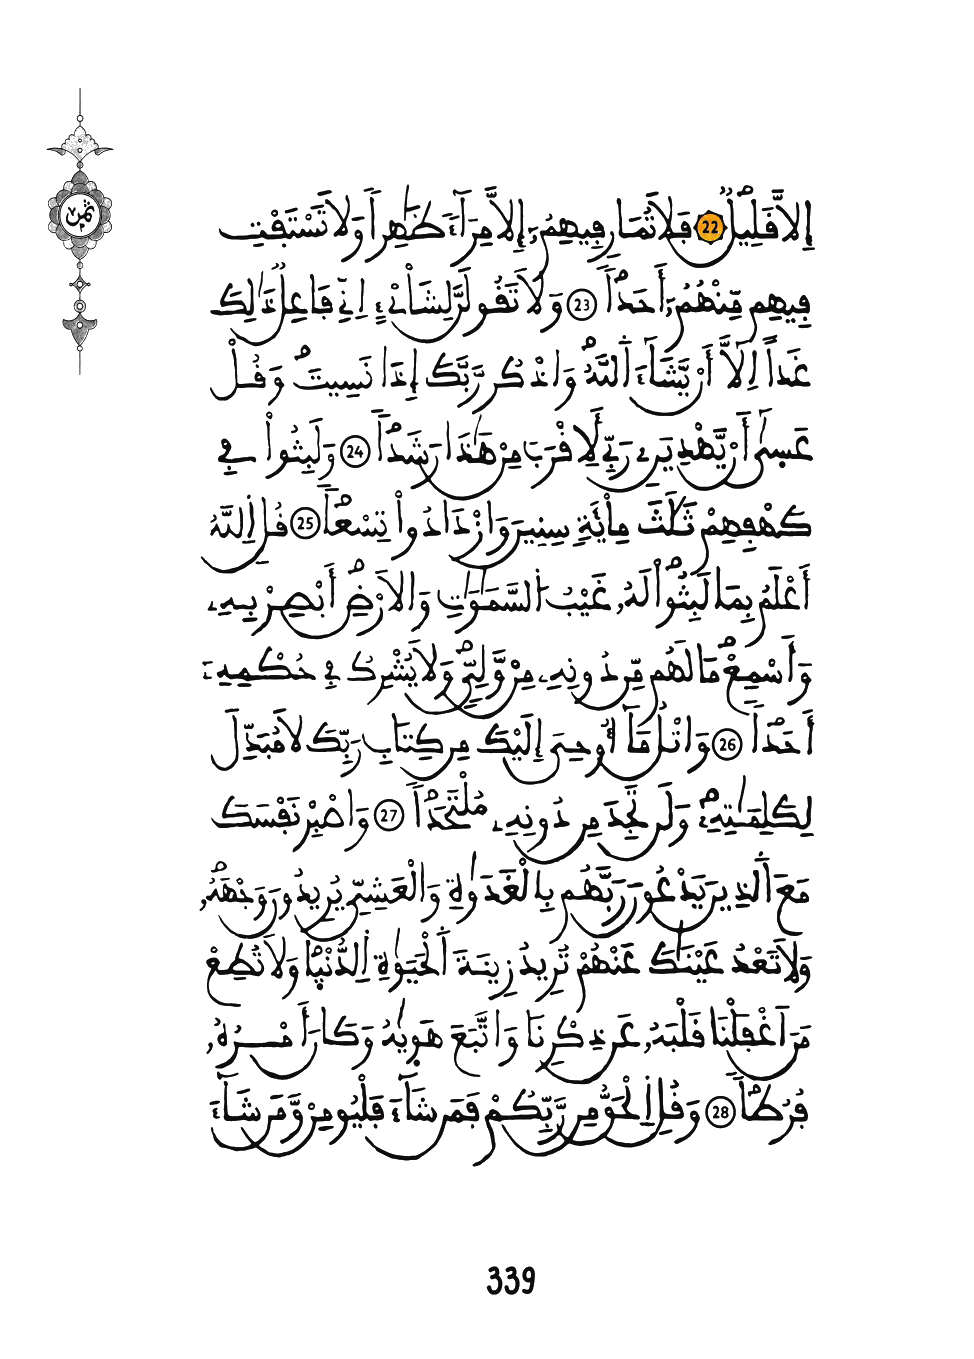 ثمن
إِلَّا قَلِيلٌ 22 فَلَا تُمَارِ فِيهِمُ إِلَّا مِرَآءً ظَٰهِراً وَلَا تَسْتَفْتِ
فِيهِم مِّنْهُمُ أَحَداً 23 وَلَا تَقُولَنَّ لِشَاْےْءٍ اِنِّے فَاعِلٌ ذَٰلِكَ
غَداً اِلَّا أَنْ يَّشَآءَ اَللَّهُ وَاذْكُر رَّبَّكَ إِذَا نَسِيتَ وَقُلْ
عَسٰىٓ أَنْ يَّهْدِيَنِۦ رَبِّے لِأَقْرَبَ مِنْ هَٰذَا رَشَداً 24 وَلَبِثُواْ فِے
كَهْفِهِمْ ثَلَٰثَ مِاْئَةٖ سِنِينَ وَازْدَادُواْ تِسْعاً 25 قُلِ اِللَّهُ
أَعْلَمُ بِمَا لَبِثُواْ لَهُۥ غَيْبُ اُلسَّمَٰوَٰتِ وَالَارْضِ أَبْصِرْ بِهِۦ
وَأَسْمِعْ مَا لَهُم مِّن دُونِهِۦ مِنْ وَّلِيّٖ وَلَا يُشْرِكُ فِے حُكْمِهِۦٓ
أَحَداً 26 وَاتْلُ مَآ أُوحِيَ إِلَيْكَ مِن كِتَابِ رَبِّكَ لَا مُبَدِّلَ
لِكَلِمَٰتِهِۦ وَلَن تَجِدَ مِن دُونِهِۦ مُلْتَحَداً 27 وَاصْبِرْ نَفْسَكَ
مَعَ اَلذِينَ يَدْعُونَ رَبَّهُم بِالْغَدَوٰةِ وَالْعَشِيِّ يُرِيدُونَ وَجْهَهُۥ
وَلَا تَعْدُ عَيْنَٰكَ عَنْهُمْ تُرِيدُ زِينَةَ اَلْحَيَوٰةِ اِلدُّنْيٰا وَلَا تُطِعْ
مَنَ اَغْفَلْنَا قَلْبَهُۥ عَن ذِكْرِنَا وَاتَّبَعَ هَوٰيٰهُ وَكَانَ أَمْرُهُۥ
فُرُطاً 28 وَقُلِ اِلْحَقُّ مِن رَّبِّكُمْ فَمَن شَآءَ فَلْيُومِنْ وَّمَن شَآءَ
339